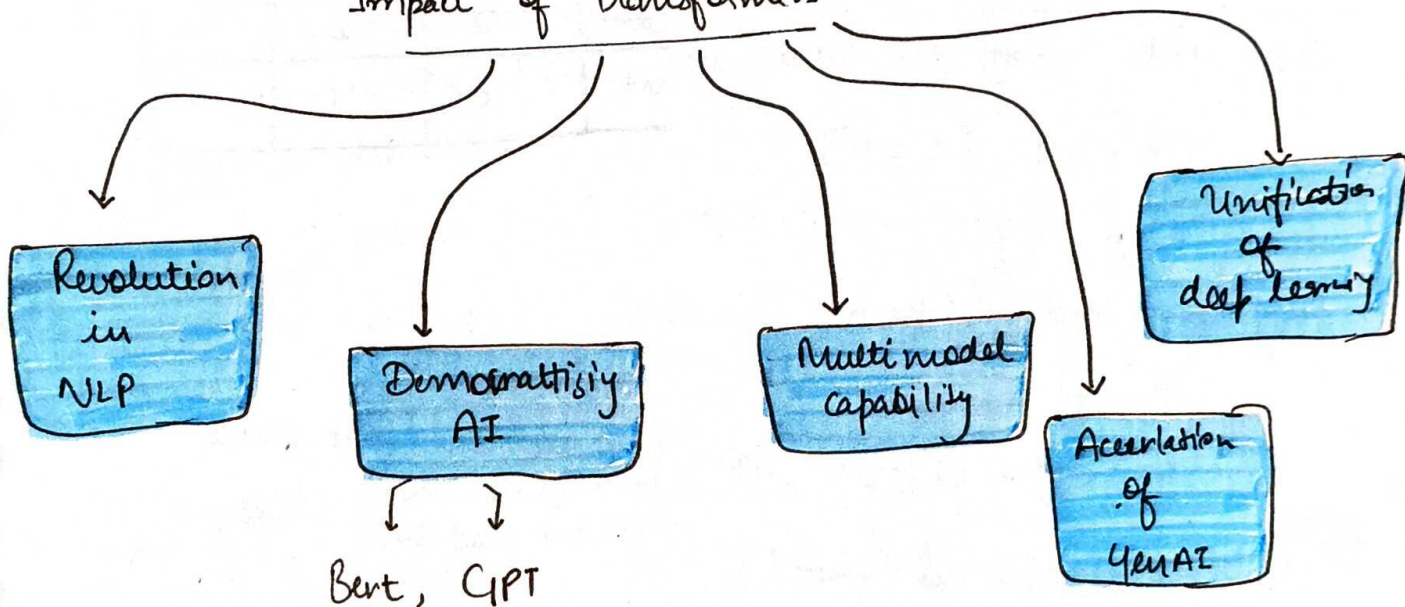 Impact of Transformers
Revolution
in
NLP
Demorattisiy
AI
Bert, GPT
Multimodel
capability
Accerlation
of
GenAI
Unification
of
deep learniy